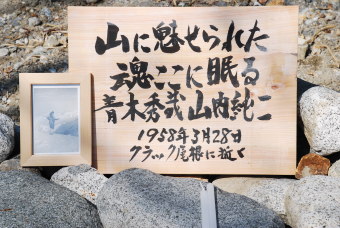 山に魅せられた
魂ここに眠る
青木秀哉 山内純二
1958年3月28日
クラック尾根に逝く